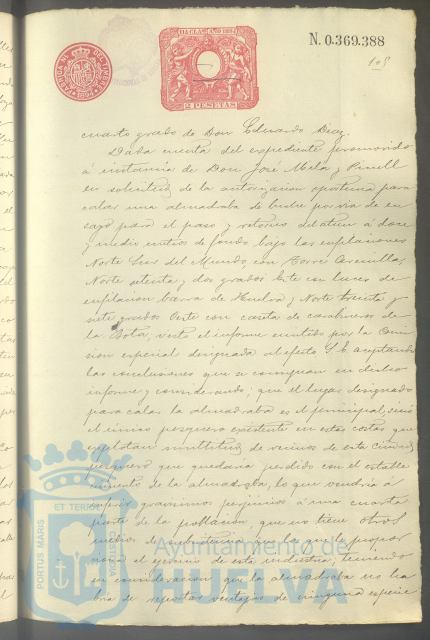 11ª CLASE AÑO 1894
N. 0.369.388
FABRICA NAL DEL TIMBRE
2 PESETAS
105
cuarto grado de Don Eduardo Diaz.
Dada cuenta del expediente promovido
á instancia de Don José Mela y Pinell
en solicitud de la autorizacion oportuna para
calar una almadraba de buche por via de en
sayo para el paso y retorno del atun á doce
y medio metros de fondo, bajo las enfilaciones
Norte Sur del Mundo, con Torre Arenilla,
Norte setenta y dos grados Este con luces de
enfilacion barra de Huelva y Norte treinta y
siete grados Oeste con caseta de carabineros de
la Bota, visto el informe emitido por la Comi
sion especial designada al efecto S. E. aceptando
las conclusiones que se consignan en dicho
informe y considerando: que el lugar designado
para calar la almadraba es el principal, sino
el único pesquero existente en estas costas que
explotan multitud de vecinos de esta ciudad,
pesquero que quedaria perdido con el estable
cimiento de la almadraba, lo que vendria á
inferir gravisimos perjuicios á una cuarta
parte de la poblacion, que no tiene otros
medios de subsistencia que los que le propor
ciona el ejercicio de esta industria; teniendo
en consideracion que la almadraba no ha
bria de reportar ventajas de ninguna especie
PORTUS MARIS ET TERRAE CUSTODIA
Ayuntamiento de
HUELVA